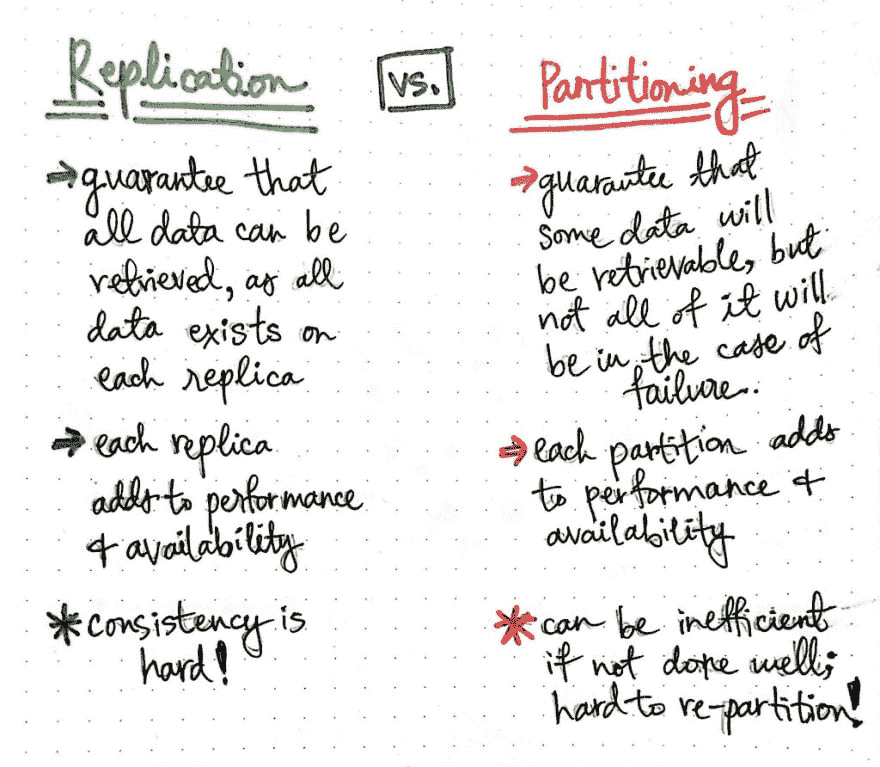 Replication
vs.
Partitioning
→ guarantee that
all data can be
retrieved, as all
data exists on
each replica
→ each replica
adds to performance
+ availability
* consistency is
hard!
→ guarantee that
some data will
be retrievable, but
not all of it will
be in the case of
failure..
→ each partition adds
to performance +
availability
* can be inefficient
if not done well;
hard to re-partition!